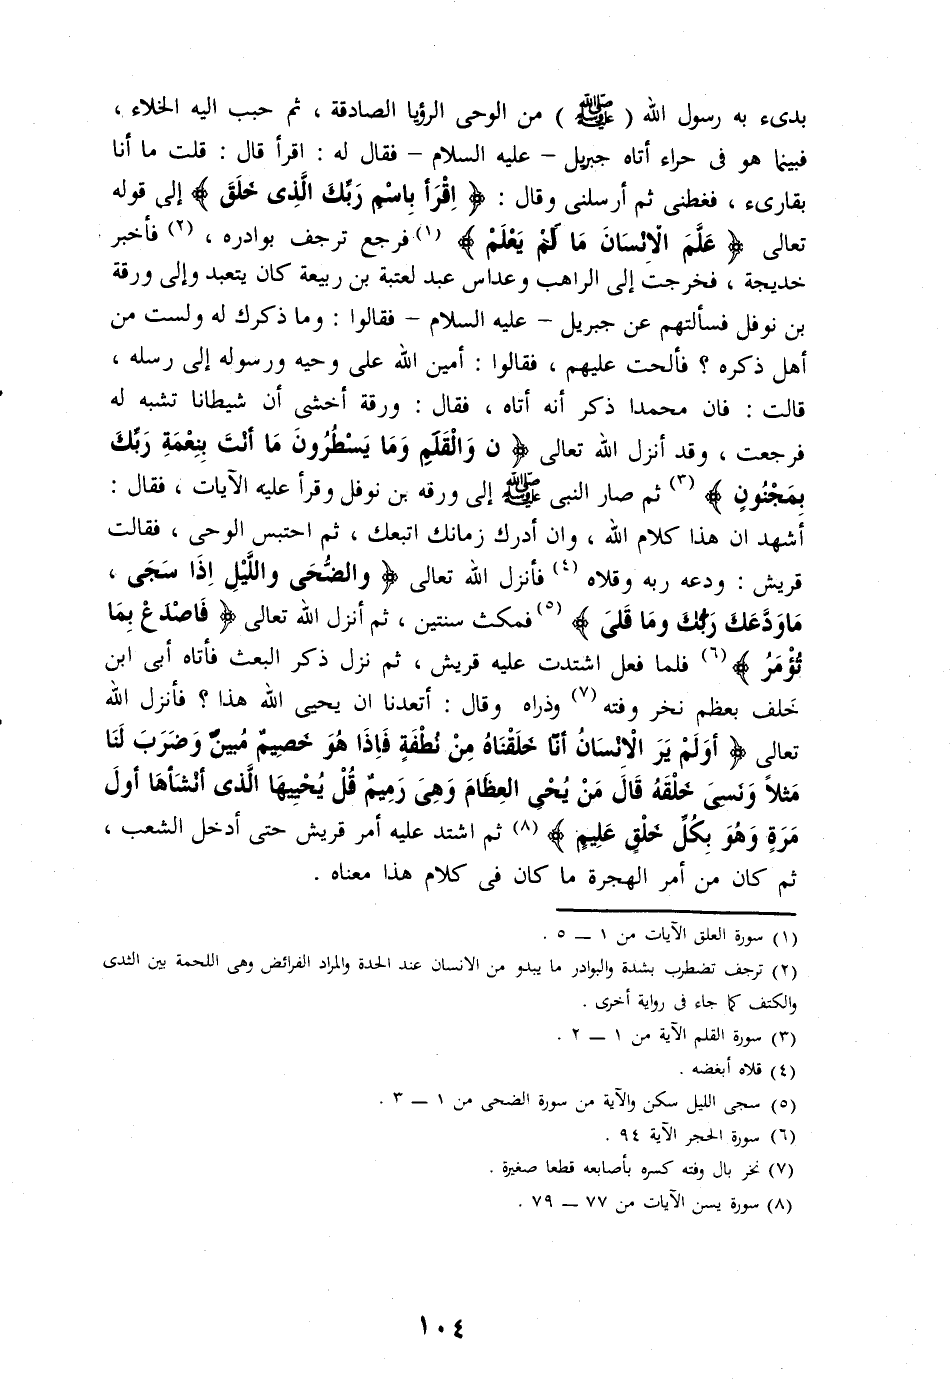 بدىء به رسول الله ( ﷺ ) من الوحى الرؤيا الصادقة ، ثم حبب اليه الخلاء ،
فبينما هو فى حراء أتاه جبريل – عليه السلام – فقال له : اقرأ قال : قلت ما أنا
بقارىء ، فغطنى ثم أرسلنى وقال : ﴿ اِقْرَأ بِاسْمِ رَبِّكَ الَّذِى خَلَقَ ﴾ إلى قوله
تعالى ﴿ عَلَّمَ الْإِنْسَانَ مَا لَمْ يَعْلَمْ ﴾ (١) فرجع ترجف بوادره ، (٢) فأخبر
خديجة ، فخرجت إلى الراهب وعداس عبد لعتبة بن ربيعة كان يتعبد وإلى ورقة
بن نوفل فسألتهم عن جبريل – عليه السلام – فقالوا : وما ذكرك له ولست من
أهل ذكره ؟ فألحت عليهم ، فقالوا : أمين الله على وحيه ورسوله إلى رسله ،
قالت : فان محمدا ذكر أنه أتاه ، فقال : ورقة أخشى أن شيطانا تشبه له
فرجعت ، وقد أنزل الله تعالى ﴿ ن وَالْقَلَمِ وَمَا يَسْطُرُونَ مَا أنْتَ بِنِعْمَةِ رَبِّكَ
بِمَجْنُونٍ ﴾ (٣) ثم صار النبى ﷺ إلى ورقه بن نوفل وقرأ عليه الآيات ، فقال :
أشهد ان هذا كلام الله ، وان أدرك زمانك اتبعك ، ثم احتبس الوحى ، فقالت
قريش : ودعه ربه وقلاه (٤) فأنزل الله تعالى ﴿ والضُّحَى واللَّيْلِ إذَا سَجَى ،
مَاوَدَّعَكَ رَبُّكَ ومَا قَلَىَ ﴾ (٥) فمكث سنتين ، ثم أنزل الله تعالى ﴿ فَاصْدَعْ بِمَا
تُؤْمَرُ ﴾ (٦) فلما فعل اشتدت عليه قريش ، ثم نزل ذكر البعث فأتاه أبى ابن
خلف بعظم نخر وفته (٧) وذراه وقال : أتعدنا ان يحيى الله هذا ؟ فأنزل الله
تعالى ﴿ أوَلَمْ يَرَ الْإنْسَانُ أنّا خَلَقْنَاهُ مِنْ نُطْفَةٍ فَاِذَا هُوَ خَصِيمٌ مُبينٌ وَضَرَبَ لَنَا
مَثلاً وَنَسِىَ خَلْقَهُ قَالَ مَنْ يُحْيِ العِظَامَ وَهِىَ رَمِيمٌ قُلْ يُحْيِيهَا الَّذى أنْشَأهَا أولَ
مَرَةٍ وَهُوَ بِكُلِّ خَلْقٍ عَلِيمٍ ﴾ (٨) ثم اشتد عليه أمر قريش حتى أدخل الشعب ،
ثم كان من أمر الهجرة ما كان فى كلام هذا معناه .
(١) سورة العلق الآيات من ١ – ٥ .
(٢) ترجف تضطرب بشدة والبوادر ما يبدو من الانسان عند الحدة والمراد الفرائض وهى اللحمة بين الثدى
والكتف كما جاء فى رواية أخرى .
(٣) سورة القلم الآية من ١ – ٢ .
(٤) قلاه أبغضه .
(٥) سجى الليل سكن والآية من سورة الضحى من ١ – ٣ .
(٦) سورة الحجر الآية ٩٤ .
(٧) نخر بال وفته كسره بأصابعه قطعا صغيرة .
(٨) سورة يسن الآيات من ٧٧ – ٧٩ .
١٠٤